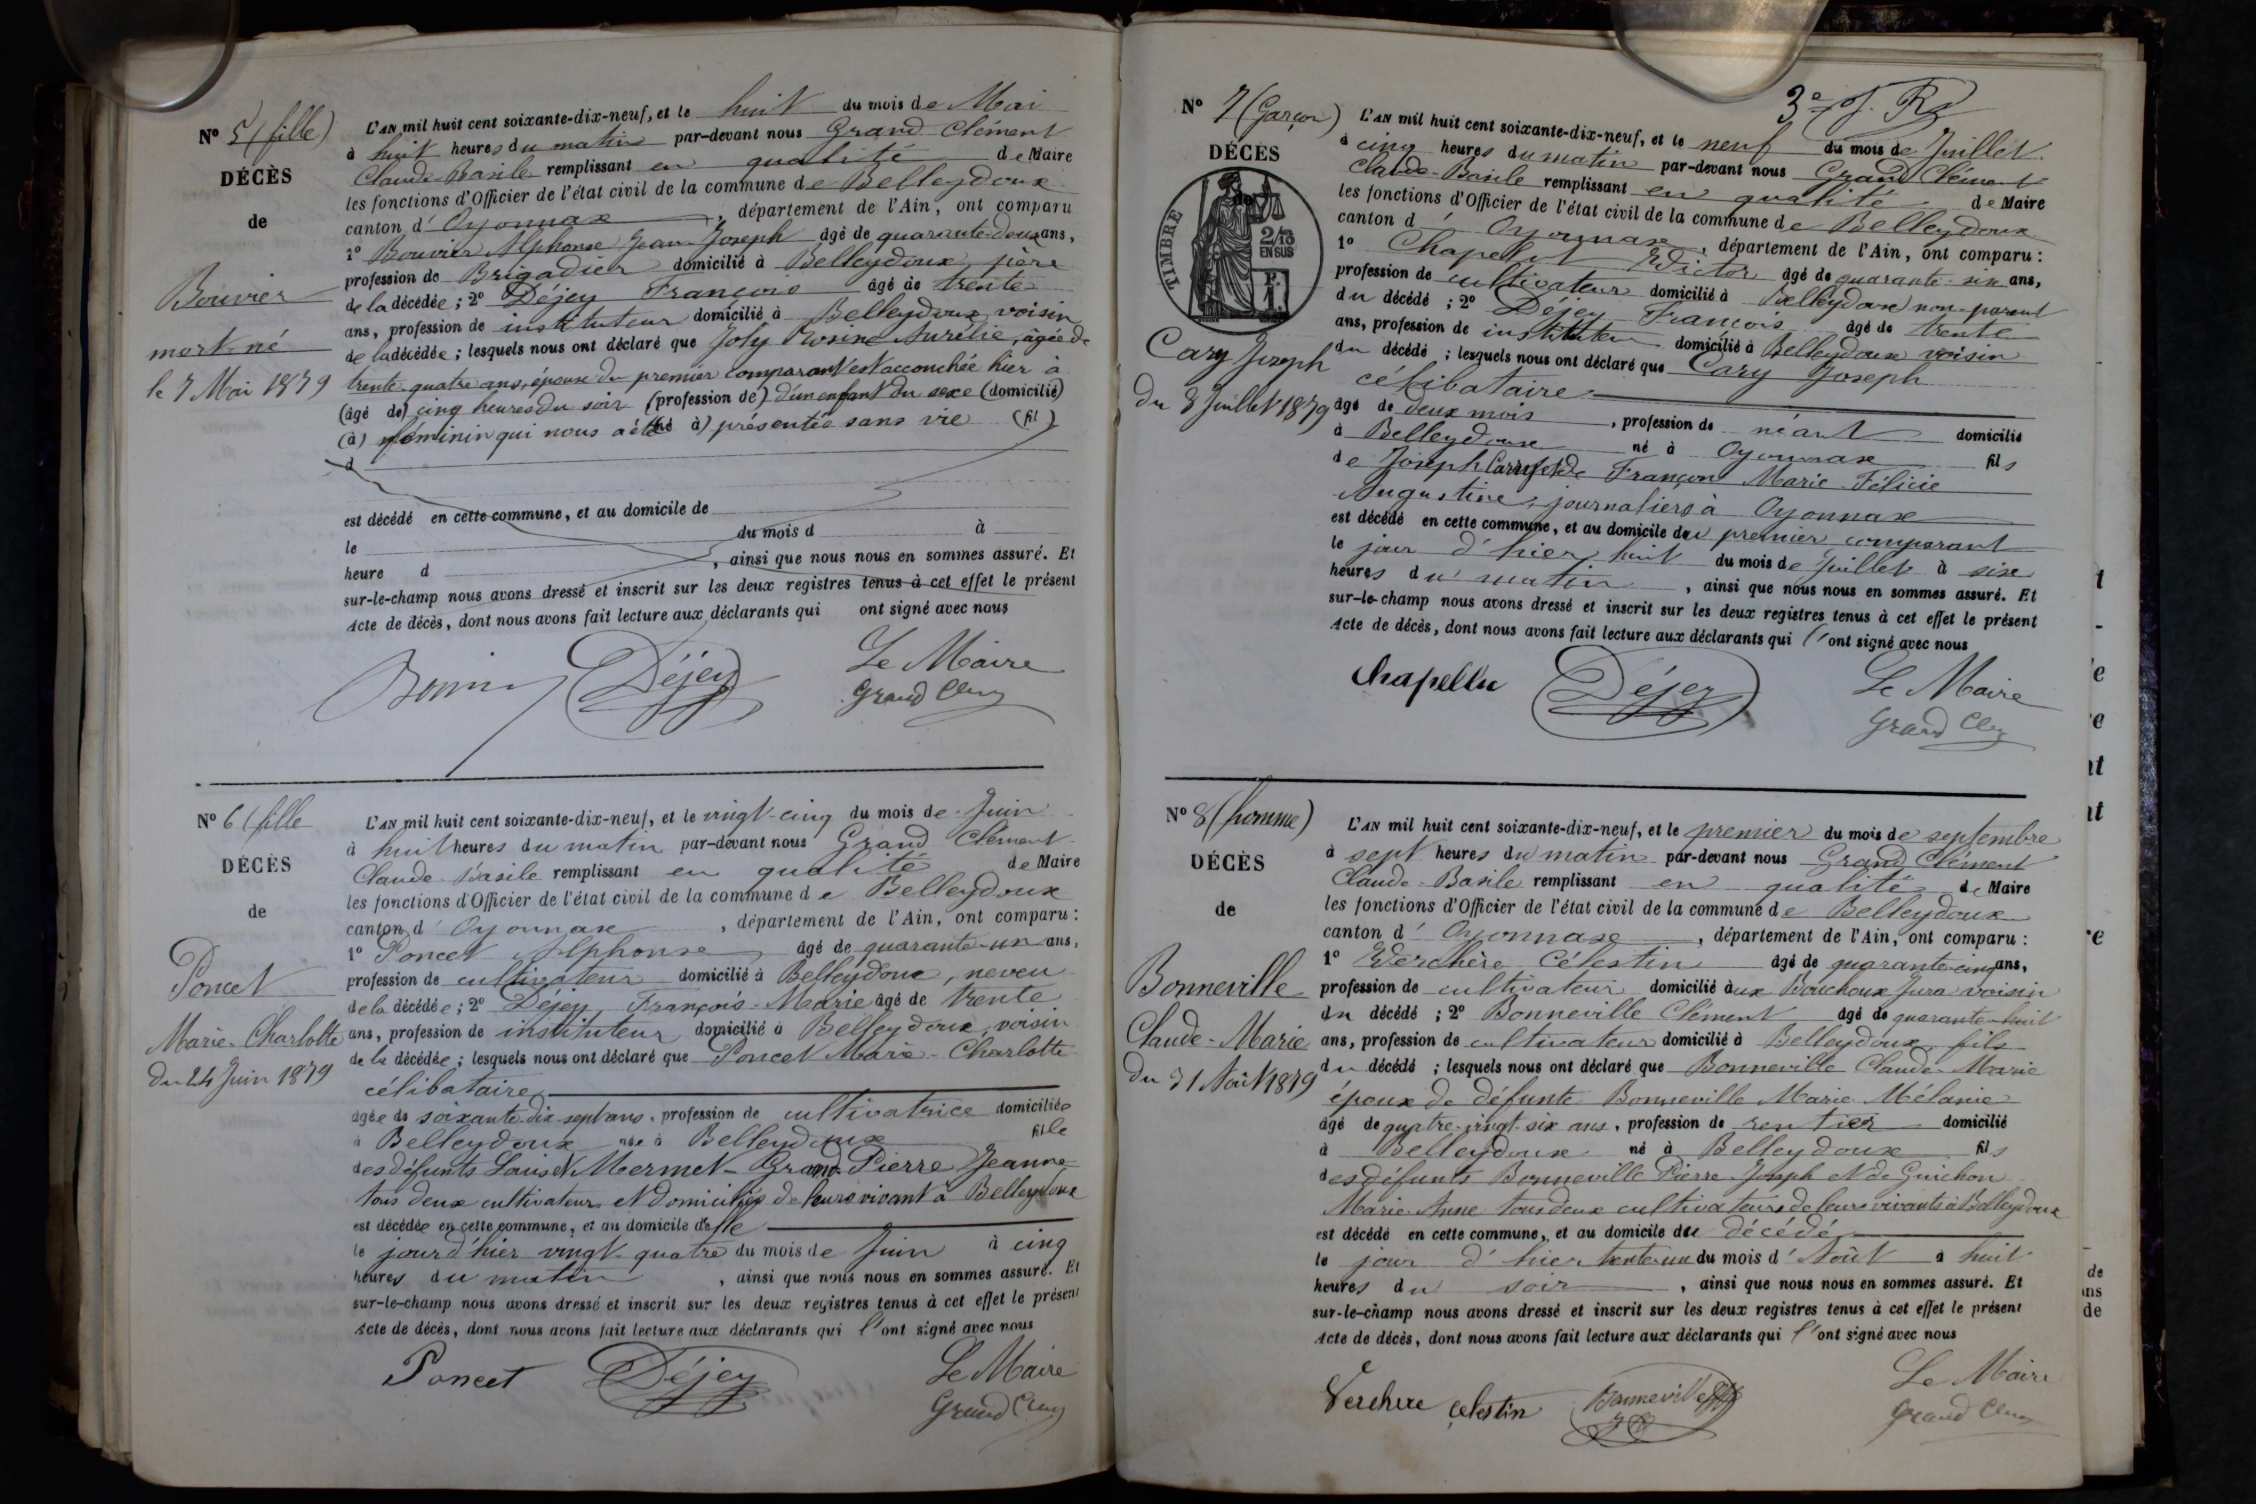 Nº 5 (fille)
DÉCÈS
de
Bouvier
mort-né
le 7 Mai 1879
L'AN mil huit cent soixante-dix-neuf, et le huit du mois de Mai
à huit heures du matin par-devant nous Grand Clément
Claude-Basile remplissant en qualité de Maire
les fonctions d'Officier de l'état civil de la commune de Belleydoux
canton d'Oyonnax, département de l'Ain, ont comparu
1º Bouvier Alphonse Jean Joseph âgé de quarante-deux ans,
profession de Brigadier domicilié à Belleydoux, père
de la décédée ; 2º Déjey François âgé de trente
ans, profession de instituteur domicilié à Belleydoux, voisin
de la décédée ; lesquels nous ont déclaré que Joly Rosine Aurélie, âgée de
trente-quatre ans, épouse du premier comparant est accouchée hier à
(âgé de) cinq heures du soir (profession de) d'un enfant du sexe (domicilié)
(à) féminin qui nous a été (né à) présentée sans vie (fil )
d
est décédé en cette commune, et au domicile de
le du mois d à
heure d , ainsi que nous nous en sommes assuré. Et
sur-le-champ nous avons dressé et inscrit sur les deux registres tenus à cet effet le présent
Acte de décès, dont nous avons fait lecture aux déclarants qui ont signé avec nous
Déjey
Le Maire
Grand Clém
Nº 6 (fille
DÉCÈS
de
Poncet
Marie-Charlotte
du 24 Juin 1879
L'AN mil huit cent soixante-dix-neuf, et le vingt-cinq du mois de Juin
à huit heures du matin par-devant nous Grand Clément
Claude-Basile remplissant en qualité de Maire
les fonctions d'Officier de l'état civil de la commune de Belleydoux
canton d'Oyonnax, département de l'Ain, ont comparu :
1º Poncet Alphonse âgé de quarante-un ans,
profession de cultivateur domicilié à Belleydoux, neveu
de la décédée ; 2º Déjey François-Marie âgé de trente
ans, profession de instituteur domicilié à Belleydoux, voisin
de la décédée ; lesquels nous ont déclaré que Poncet Marie-Charlotte
célibataire
âgée de soixante-dix-sept ans, profession de cultivatrice domiciliée
à Belleydoux née à Belleydoux fille
des défunts Louis et Mermet-Grand Pierre Jeanne
tous deux cultivateurs et domiciliés de leurs vivant à Belleydoux
est décédée en cette commune, et au domicile d'elle
le jour d'hier vingt-quatre du mois de Juin à cinq
heures du matin , ainsi que nous nous en sommes assuré. Et
sur-le-champ nous avons dressé et inscrit sur les deux registres tenus à cet effet le présent
Acte de décès, dont nous avons fait lecture aux déclarants qui l'ont signé avec nous
Poncet
Déjey
Le Maire
Grand Clém
3e
Nº 7 (Garçon)
DÉCÈS
de
TIMBRE
2/10
EN SUS
Cary Joseph
du 8 Juillet 1879
L'AN mil huit cent soixante-dix-neuf, et le neuf du mois de Juillet
à cinq heures du matin par-devant nous Grand Clément
Claude-Basile remplissant en qualité de Maire
les fonctions d'Officier de l'état civil de la commune de Belleydoux
canton d'Oyonnax, département de l'Ain, ont comparu :
1º Chapelut Victor âgé de quarante-six ans,
profession de cultivateur domicilié à Belleydoux non-parent
du décédé ; 2º Déjey François âgé de trente
ans, profession de instituteur domicilié à Belleydoux voisin
du décédé ; lesquels nous ont déclaré que Cary Joseph
célibataire
âgé de deux mois, profession de néant domicilié
à Belleydoux né à Oyonnax fils
de Joseph Cary et de Françon Marie Félicie
Augustine, journaliers à Oyonnax
est décédé en cette commune, et au domicile du premier comparant
le jour d'hier huit du mois de Juillet à six
heures du matin , ainsi que nous nous en sommes assuré. Et
sur-le-champ nous avons dressé et inscrit sur les deux registres tenus à cet effet le présent
Acte de décès, dont nous avons fait lecture aux déclarants qui l'ont signé avec nous
Déjey
Le Maire
Grand Clém
Nº 8 (homme)
DÉCÈS
de
Bonneville
Claude-Marie
du 31 Août 1879
L'AN mil huit cent soixante-dix-neuf, et le premier du mois de septembre
à sept heures du matin par-devant nous Grand Clément
Claude-Basile remplissant en qualité de Maire
les fonctions d'Officier de l'état civil de la commune de Belleydoux
canton d'Oyonnax, département de l'Ain, ont comparu :
1º Verchère Célestin âgé de quarante-cinq ans,
profession de cultivateur domicilié aux Bouchoux Jura voisin
du décédé ; 2º Bonneville Clément âgé de quarante-huit
ans, profession de cultivateur domicilié à Belleydoux, fils
du décédé ; lesquels nous ont déclaré que Bonneville Claude-Marie
époux de défunte Bonneville Marie Mélanie
âgé de quatre-vingt-six ans, profession de rentier domicilié
à Belleydoux né à Belleydoux fils
des défunts Bonneville Pierre-Joseph et de Guichon
Marie-Anne tous deux cultivateurs de leurs vivants à Belleydoux
est décédé en cette commune, et au domicile du décédé
le jour d'hier trente-un du mois d'Août à huit
heures du soir , ainsi que nous nous en sommes assuré. Et
sur-le-champ nous avons dressé et inscrit sur les deux registres tenus à cet effet le présent
Acte de décès, dont nous avons fait lecture aux déclarants qui l'ont signé avec nous
Verchere Celestin
Bonneville
Le Maire
Grand Clém